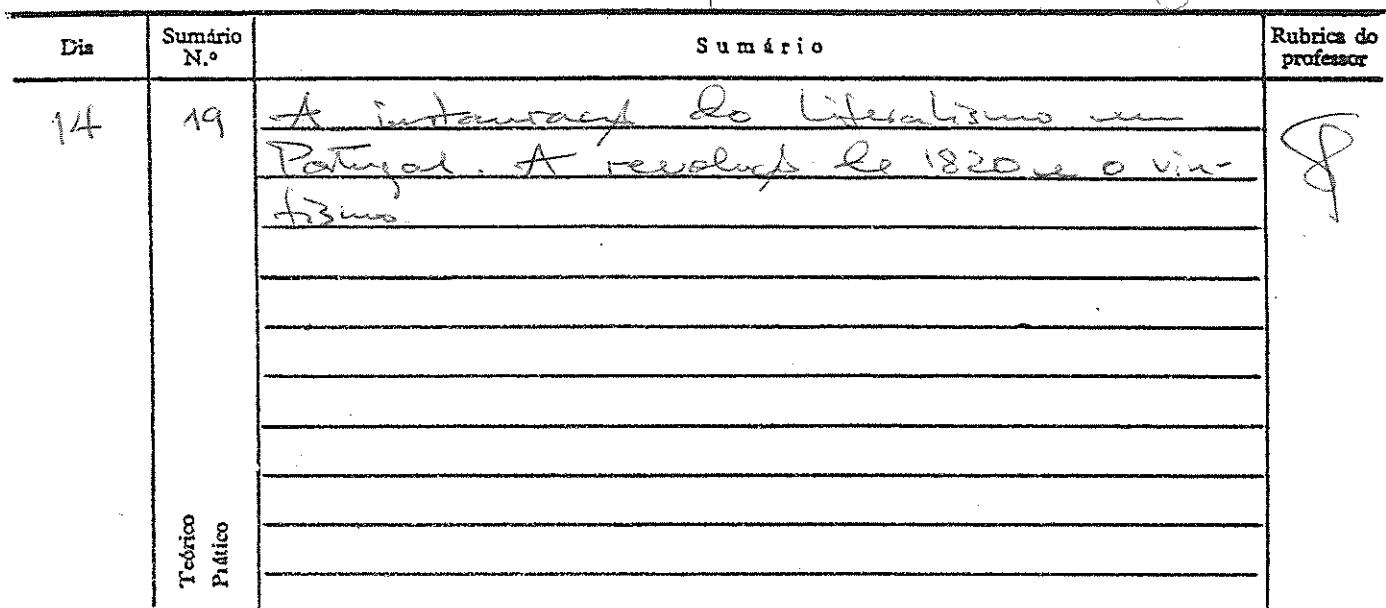 Dia
Sumário N.º
Sumário
Rubrica do professor
14 19 A instauração do Liberalismo em
Portugal. A revolução de 1820 e o vin-
tismo
Teórico
Prático